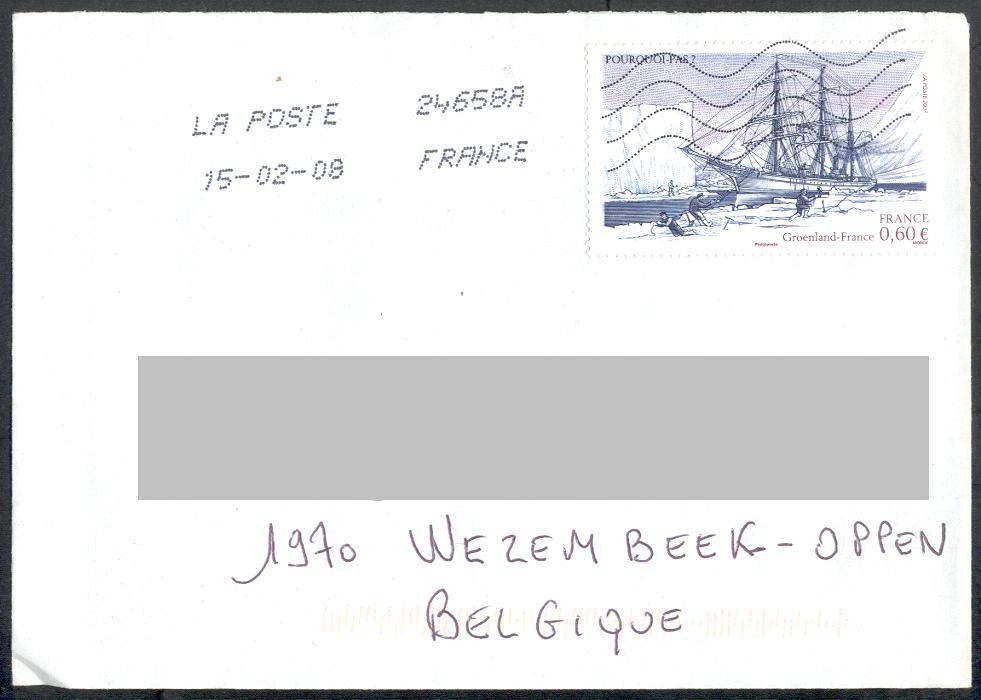 LA POSTE 24658A
15-02-08 FRANCE
POURQUOI-PAS ?
LA POSTE 2007
FRANCE
Groenland-France 0,60 €
Phil@poste
MORCK
1970 WEZEMBEEK-OPPEN
BELGIQUE